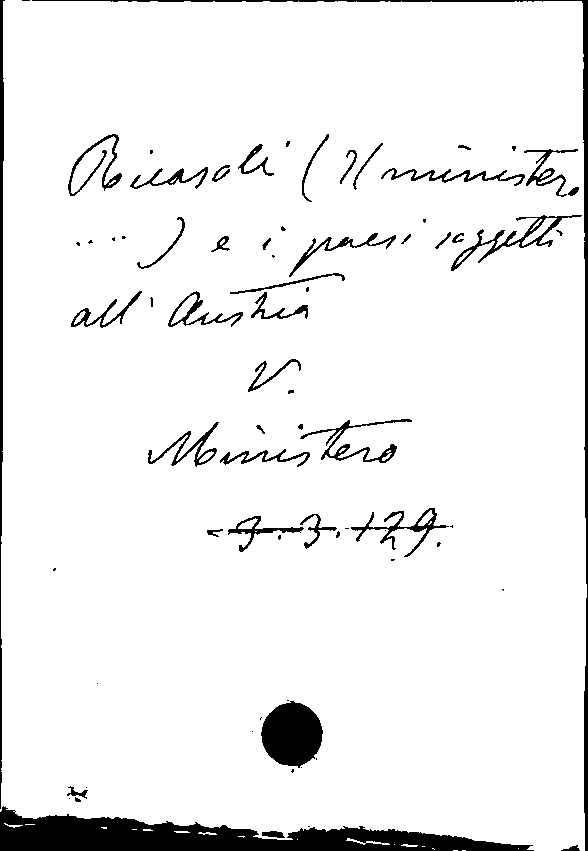 Ricasoli (Il ministero
....) e i paesi soggetti
all' Austria
V.
Ministero
3.3.129.